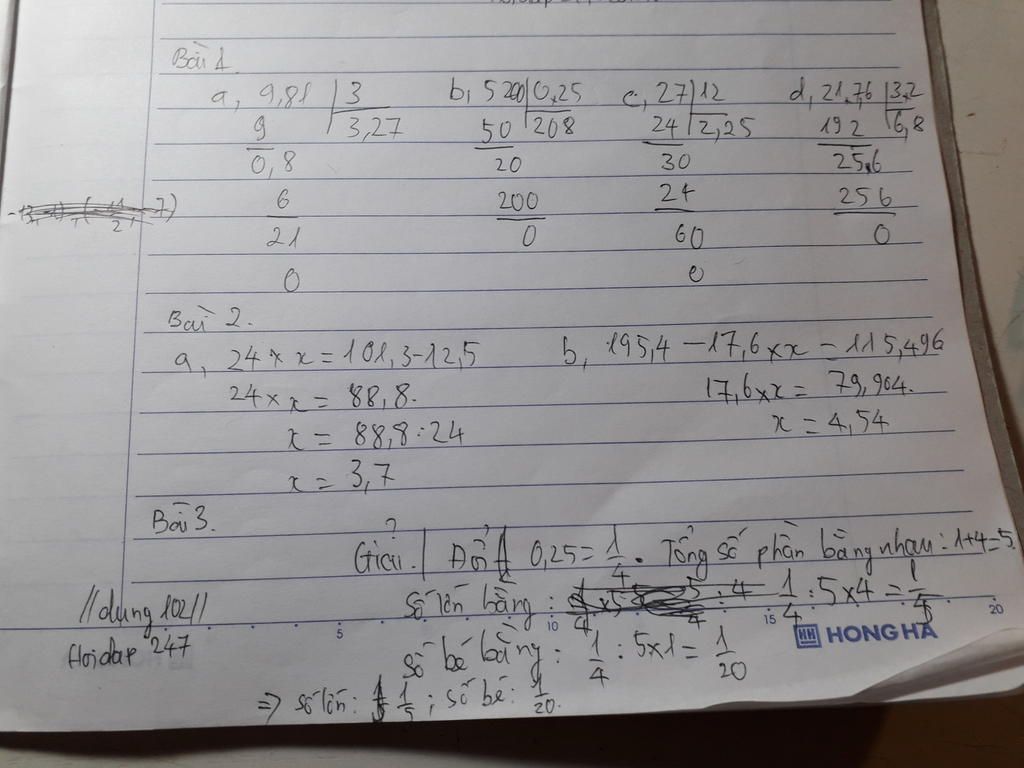 Bài 1
a, 9,81 | 3 b, 5200 | 0,25 c, 27 | 12 d, 21,76 | 3,2
9 3,27 50 208 24 2,25 192 6,8
0,8 20 30 25,6
6 200 24 256
21 0 60 0
0 0
Bài 2.
a, 24 x x = 101,3-12,5 b, 195,4 - 17,6 x x = 115,496
24 x x = 88,8. 17,6 x x = 79,904.
x = 88,8 : 24 x = 4,54
x = 3,7
Bài 3.
Giải. | Đổi 0,25 = 1/4. Tổng số phần bằng nhau: 1+4=5.
Số lớn bằng: 1/4 : 5x4 = 1/5
//dung102// số bé bằng: 1/4 : 5x1 = 1/20
Hoidap 247
=> số lớn: 1/5 ; số bé: 1/20.
5 10 15 20
HH HONG HA